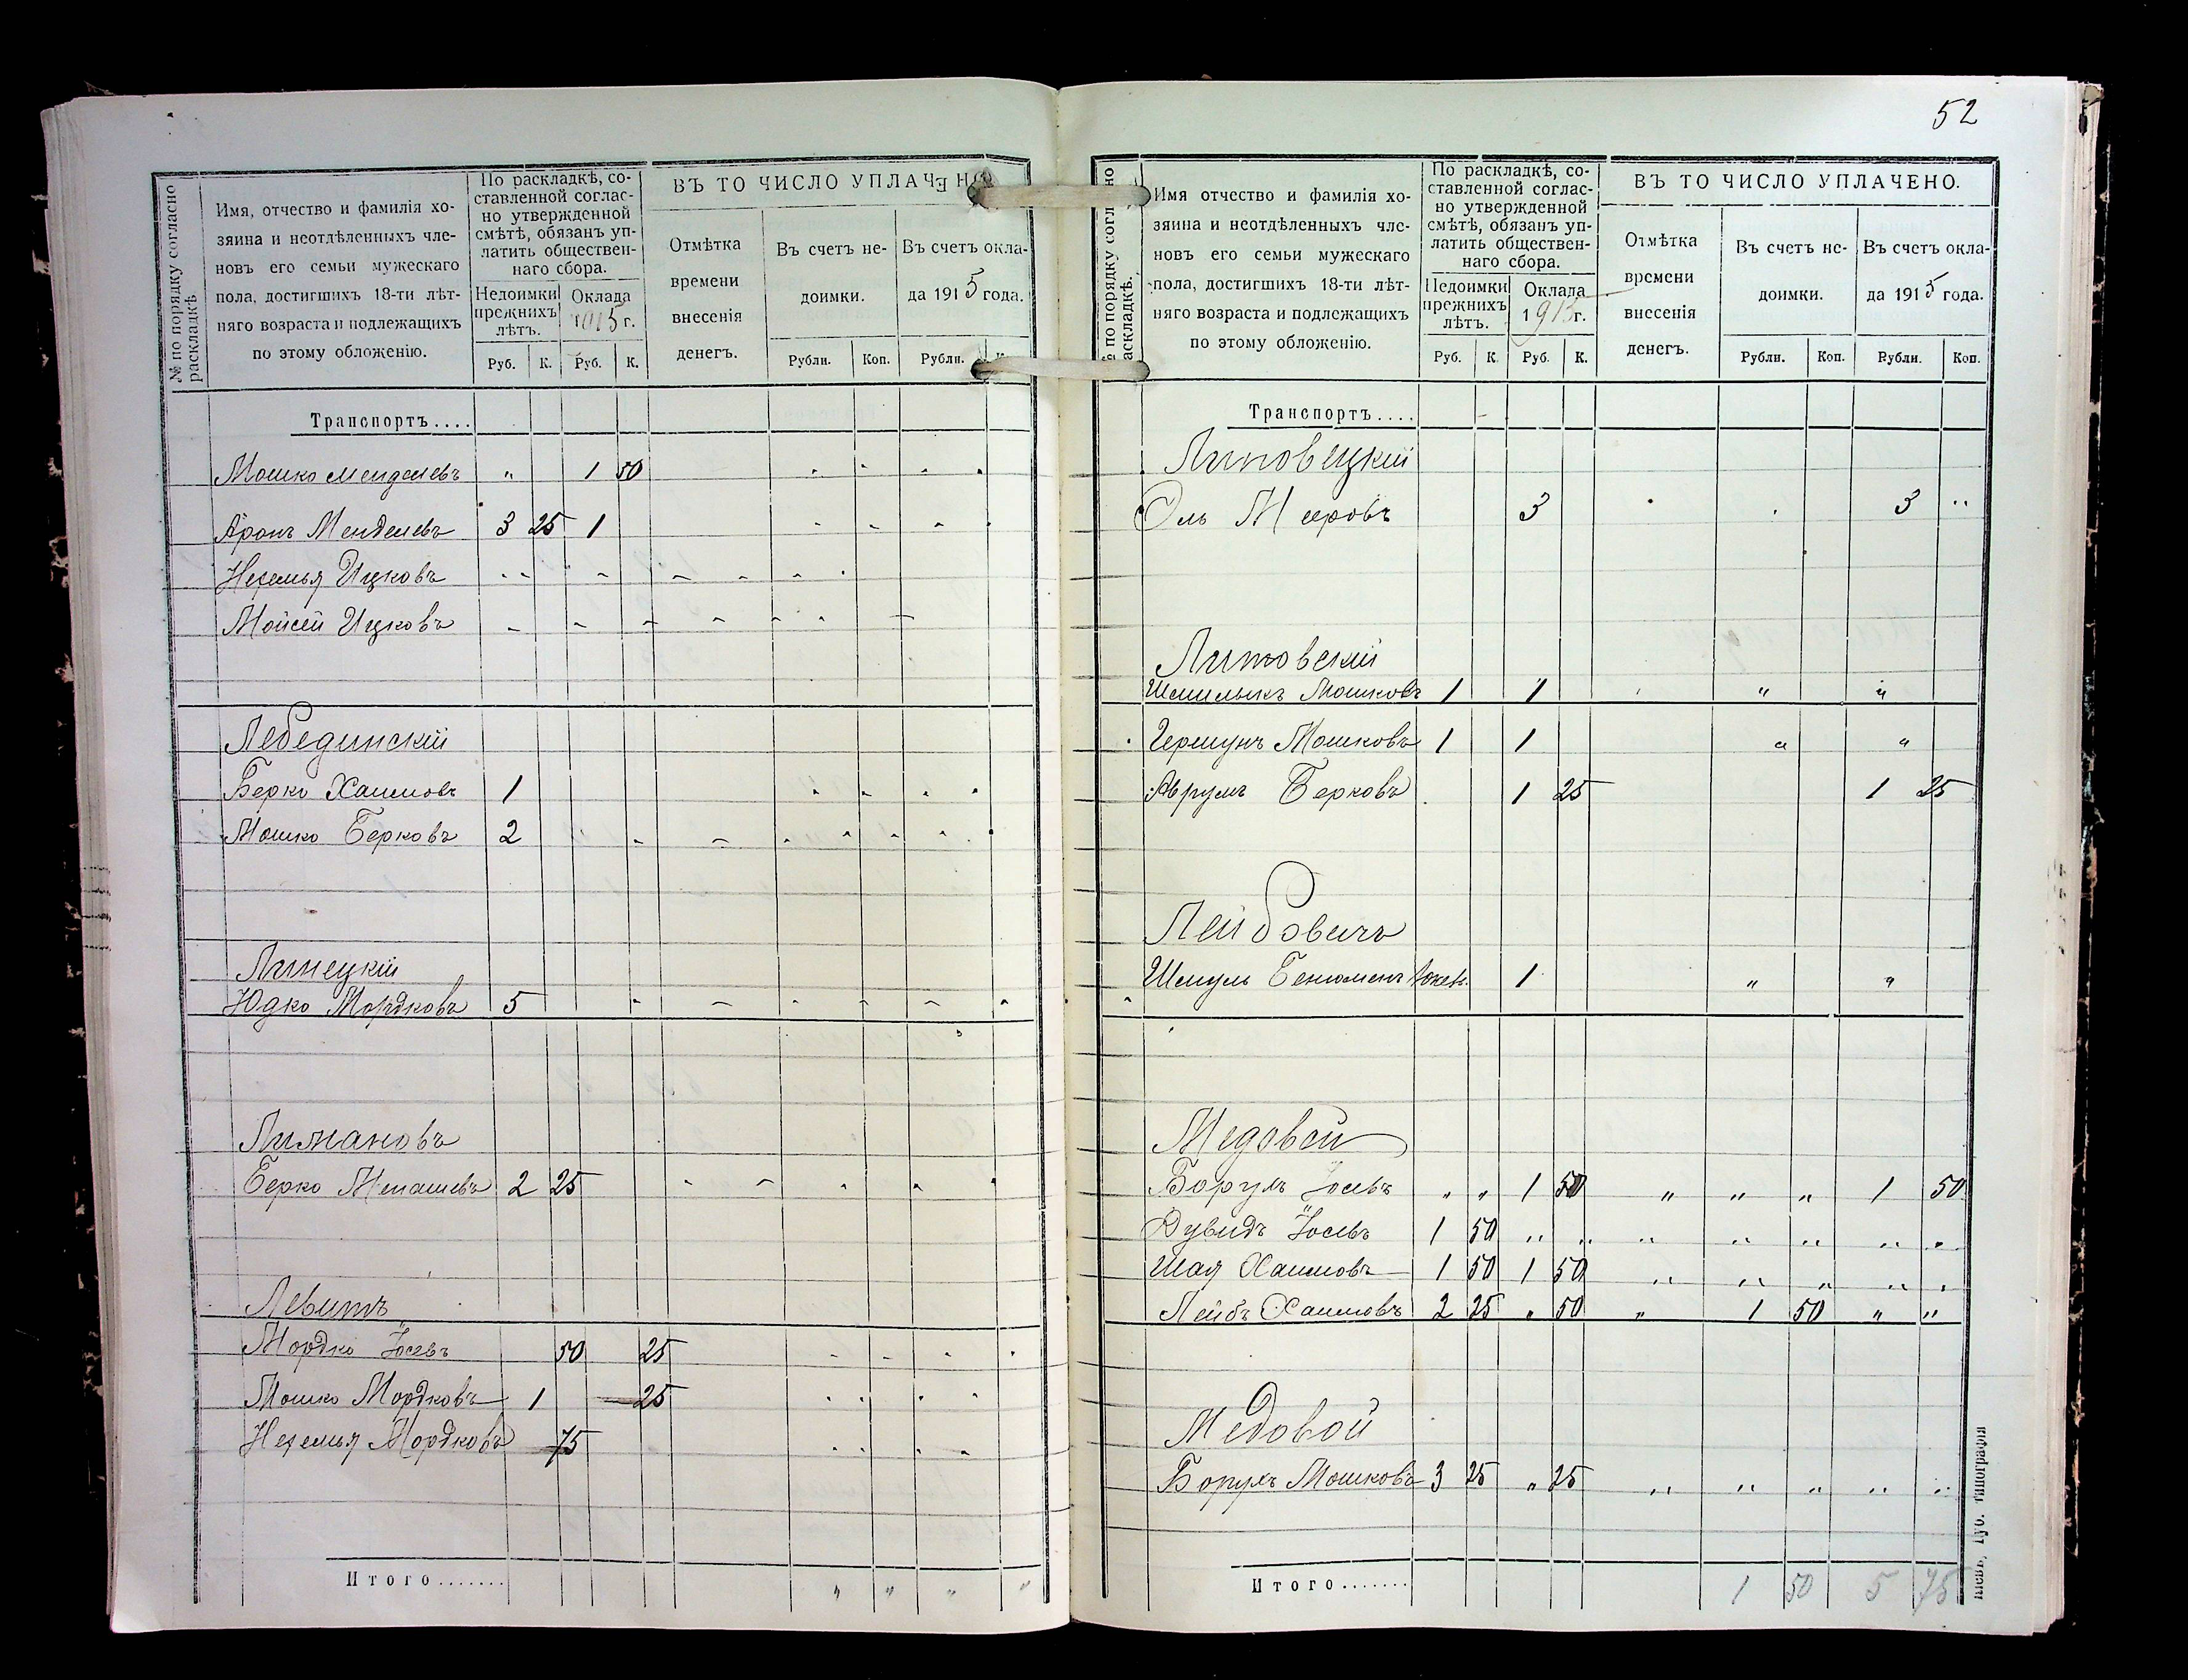 № по порядку согласно раскладкѣ
Имя, отчество и фамилія хо-
зяина и неотдѣленныхъ чле-
новъ его семьи мужескаго
пола, достигшихъ 18-ти лѣт-
няго возраста и подлежащихъ
по этому обложенію.
По раскладкѣ, со-
ставленной соглас-
но утвержденной
смѣтѣ, обязанъ уп-
латить обществен-
наго сбора.
Недоимки прежнихъ лѣтъ.
Оклада 1915 г.
Руб. К. Руб. К.
ВЪ ТО ЧИСЛО УПЛАЧЕНО
Отмѣтка
времени
внесенія
денегъ.
Въ счетъ не-
доимки.
Въ счетъ окла-
да 1915 года.
Рубли. Коп. Рубли. К
Транспортъ....
Мошко Менделевъ " 1 50
Аронъ Менделевъ 3 25 1
Нехемья Ицковъ
Мойсей Ицковъ
Лебединскій
Берко Хаимовъ 1
Мошко Берковъ 2
Линецкій
Юдко Мордковъ 5
Лимановъ
Берко Менашевъ 2 25
Левитъ
Мордко Іосевъ 50 25
Мошко Мордковъ 1 25
Нехемья Мордковъ 75
Итого....... " " " "
52
№ по порядку согласно раскладкѣ.
Имя отчество и фамилія хо-
зяина и неотдѣленныхъ чле-
новъ его семьи мужескаго
пола, достигшихъ 18-ти лѣт-
няго возраста и подлежащихъ
по этому обложенію.
По раскладкѣ, со-
ставленной соглас-
но утвержденной
смѣтѣ, обязанъ уп-
латить обществен-
наго сбора.
Недоимки прежнихъ лѣтъ.
Оклада 1915 г.
Руб. К. Руб. К.
ВЪ ТО ЧИСЛО УПЛАЧЕНО.
Отмѣтка
времени
внесенія
денегъ.
Въ счетъ не-
доимки.
Въ счетъ окла-
да 1915 года.
Рубли. Коп. Рубли. Коп.
Транспортъ....
Липовецкій
Эль Мееровъ 3 3 "
Литовскій
Шмилыкъ Мошковъ 1 1 " "
Гершунъ Мошковъ 1 1 " "
Аврумъ Берковъ 1 25 1 25
Лейбовичъ
Шмуль Беніомен 1 " "
Медовой
Борухъ Іосевъ " " 1 50 " " " 1 50
Дувидъ Іосевъ 1 50 " " " " " " "
Шая Хаимовъ 1 50 1 50 " " " " "
Лейбъ Хаимовъ 2 25 " 50 " 1 50 " "
Медовой
Борухъ Мошковъ 3 25 " 25 " " " " "
Итого....... 1 50 5 75
Кіевъ, Губ. типографія